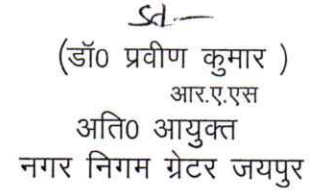 Sd—
(डॉ0 प्रवीण कुमार )
आर.ए.एस
अति0 आयुक्त
नगर निगम ग्रेटर जयपुर